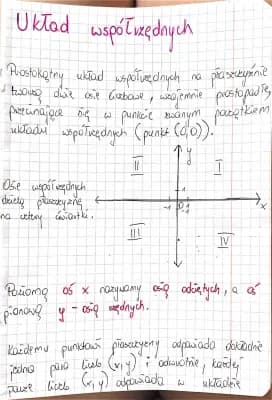 Układ współrzędnych
Prostokątny układ współrzędnych na płaszczyźnie
tworzą dwie osie liczbowe, wzajemnie prostopadłe,
przecinające się w punkcie zwanym początkiem
układu współrzędnych (punkt (0,0)).
II
y
I
Osie współrzędnych
dzielą płaszczyznę
na cztery ćwiartki.
1
-1 0 1
x
III
-1
IV
Poziomą oś x nazywamy osią odciętych, a oś
pionową y - osią rzędnych.
Każdemu punktowi płaszczyzny odpowiada dokładnie
jedna para liczb (x,y) i odwrotnie, każdej
parze liczb (x,y) odpowiada w układzie